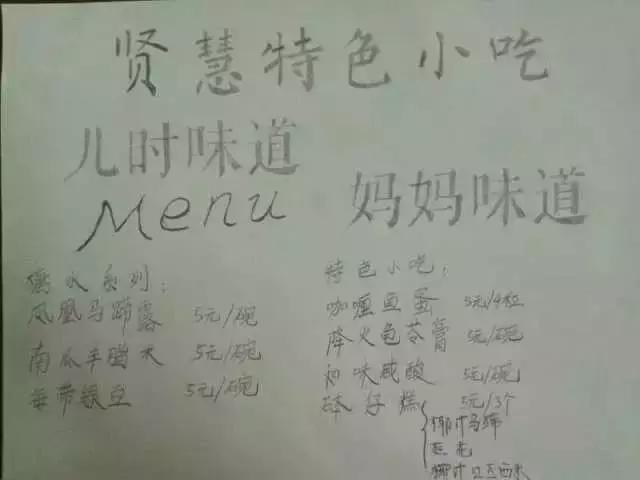 贤慧特色小吃
儿时味道
Menu
妈妈味道
糖水系列：
凤凰马蹄露 5元/碗
南瓜羊醋大 5元/碗
海带绿豆 5元/碗
特色小吃：
咖喱鱼蛋 5元/4粒
降火龟苓膏 5元/碗
初味咸酸 5元/碗
砵仔糕 5元/3个
椰汁马蹄
红豆
椰汁 西米